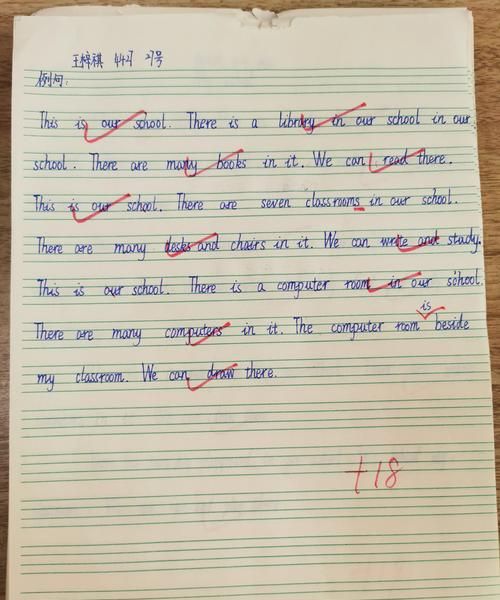 王梓祺 442 21号
例句:
This is our school. There is a library in our school in our
school. There are many books in it. We can read there.
This is our school. There are seven classrooms in our school.
There are many desks and chairs in it. We can write and study.
This is our school. There is a computer room in our school.
is
There are many computers in it. The computer room beside
my classroom. We can draw there.
+18